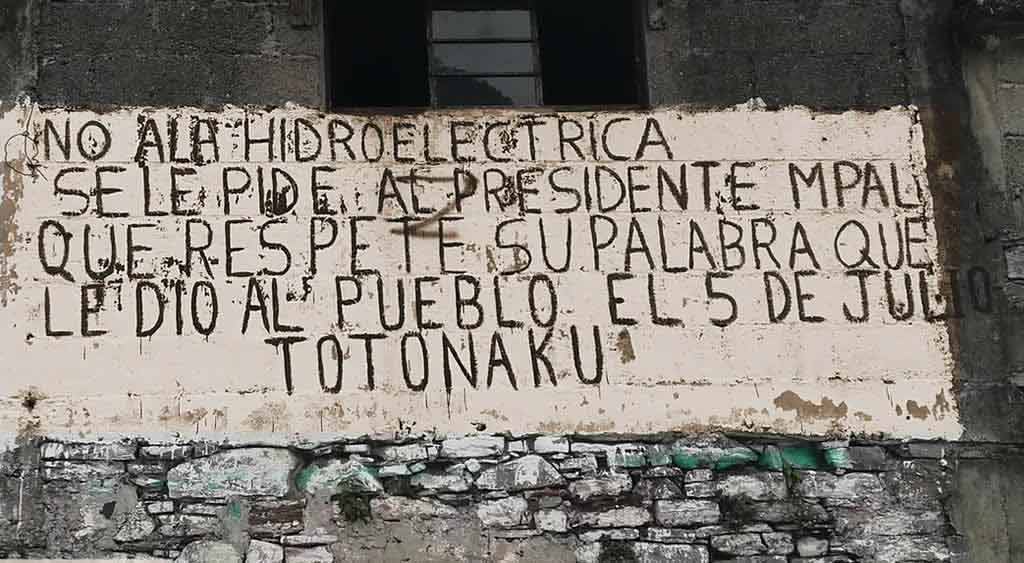 NO ALA HIDROELECTRICA
SE LE PIDE AL PRESIDENTE MPAL
QUE RESPETE SU PALABRA QUE
LE DIO AL PUEBLO EL 5 DE JULIO
TOTONAKU